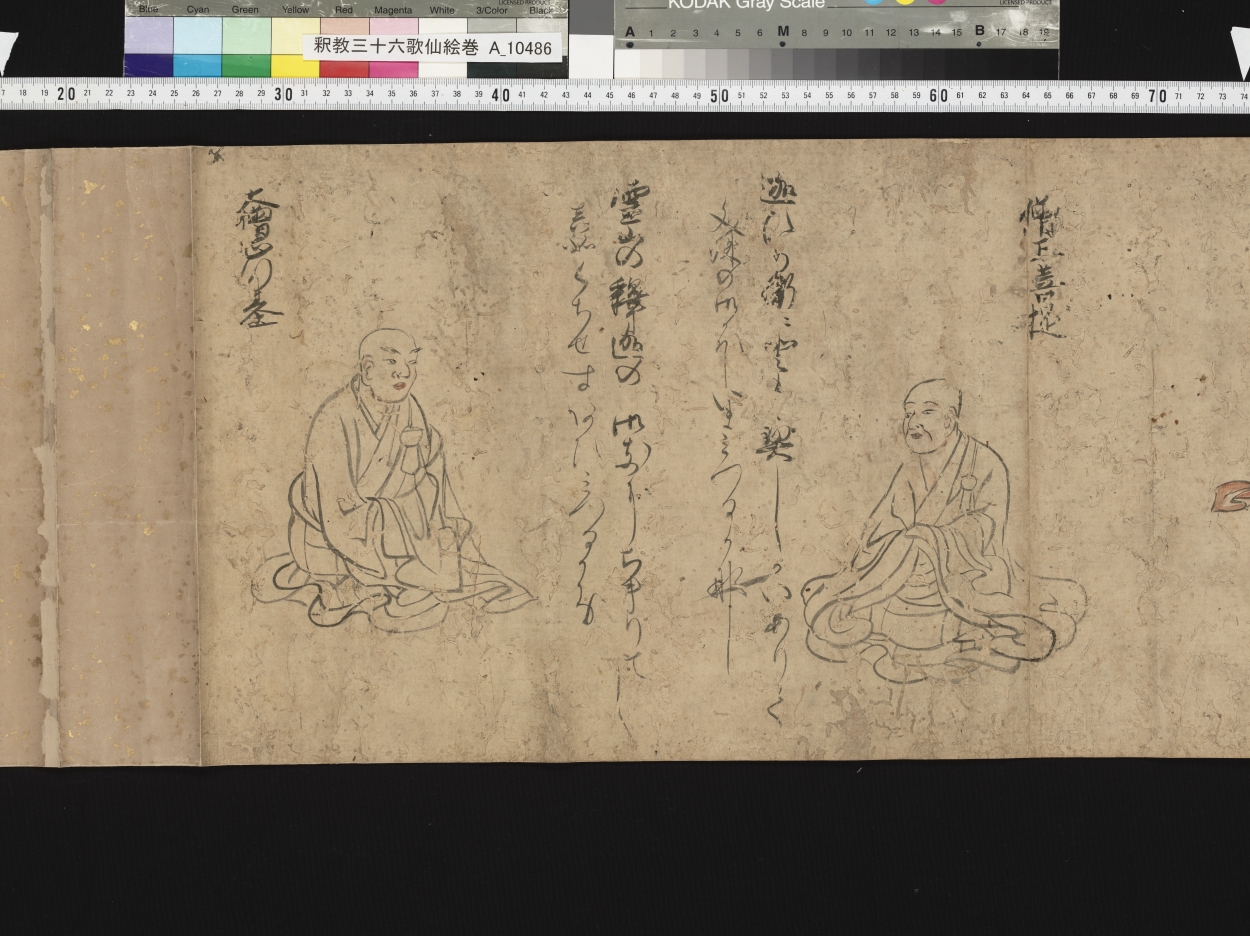 Blue Cyan Green Yellow Red Magenta White 3/Color Black
LICENSED PRODUCT
釈教三十六歌仙絵巻 A_10486
KODAK Gray Scale
LICENSED PRODUCT
A 1 2 3 4 5 6 M 8 9 10 11 12 13 14 15 B 17 18 19
17 18 19 20 21 22 23 24 25 26 27 28 29 30 31 32 33 34 35 36 37 38 39 40 41 42 43 44 45 46 47 48 49 50 51 52 53 54 55 56 57 58 59 60 61 62 63 64 65 66 67 68 69 70 71 72 73 74
僧正菩提
迦ひら衛ニ契しかひありて
文殊の御かほいまみつるか那
霊山の釋迦の御まへにちきりてし
真如くちせすあひみつるかな
大僧正行基